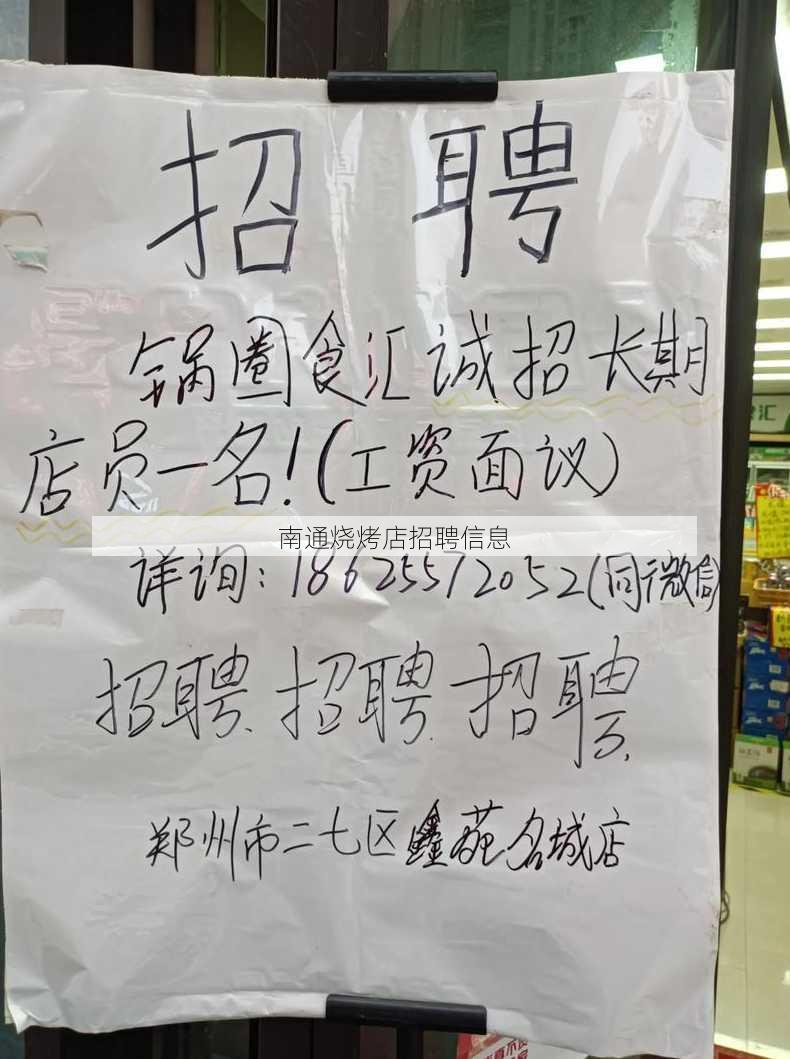 招 聘
锅圈食汇诚招长期
店员一名!(工资面议)
南通烧烤店招聘信息
详询:18625572052(同微信)
招聘.招聘.招聘.
郑州市二七区鑫苑名城店
汇